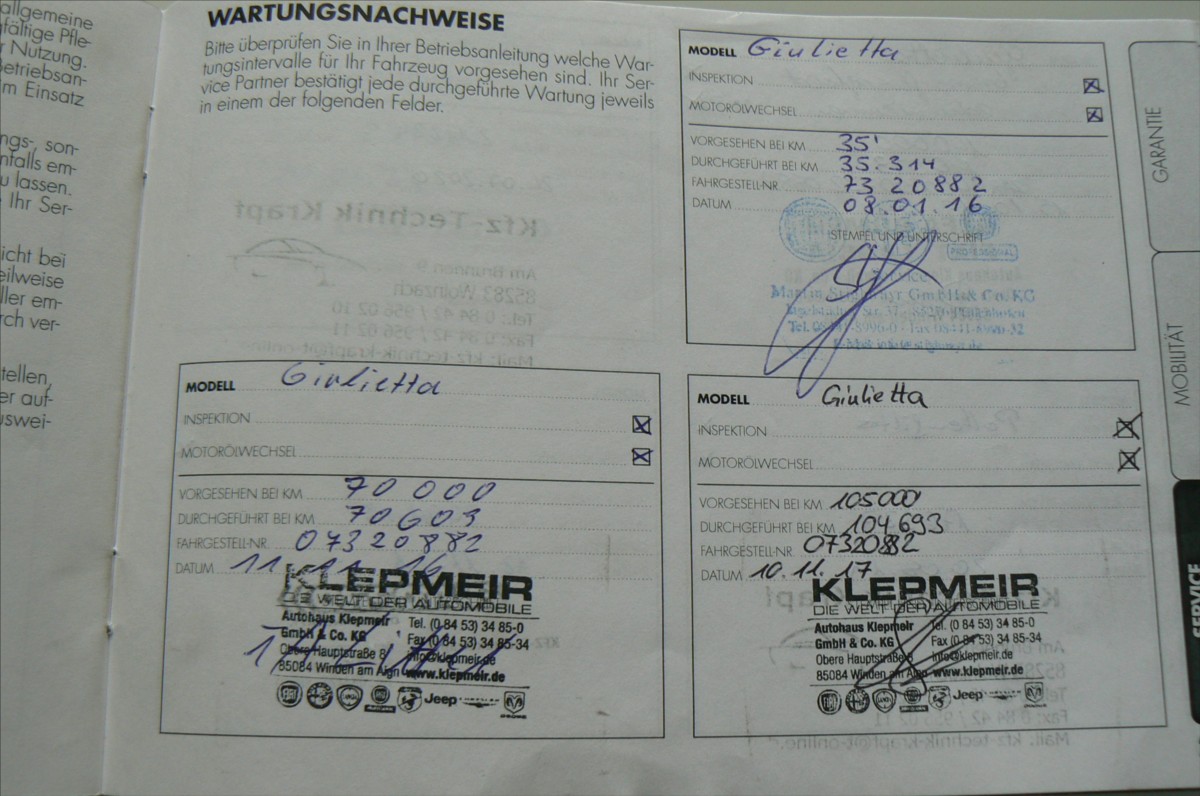 allgemeine
fältige Pfle-
r Nutzung.
Betriebsan-
im Einsatz
ngs-, son-
nfalls em-
u lassen.
Ihr Ser-
icht bei
eilweise
ller em-
rch ver-
tellen,
er auf-
uswei-
WARTUNGSNACHWEISE
Bitte überprüfen Sie in Ihrer Betriebsanleitung welche War-
tungsintervalle für Ihr Fahrzeug vorgesehen sind. Ihr Ser-
vice Partner bestätigt jede durchgeführte Wartung jeweils
in einem der folgenden Felder.
MODELL Giulietta
INSPEKTION
MOTORÖLWECHSEL
VORGESEHEN BEI KM 35'
DURCHGEFÜHRT BEI KM 35.314
FAHRGESTELL-NR. 73 20882
DATUM 08.01.16
STEMPEL UND UNTERSCHRIFT
PROFESSIONAL
GmbH & Co. KG
MODELL Giulietta
INSPEKTION
MOTORÖLWECHSEL
VORGESEHEN BEI KM 70 000
DURCHGEFÜHRT BEI KM 70603
FAHRGESTELL-NR. 07320882
DATUM 11 11 16
KLEPMEIR
DIE WELT DER AUTOMOBILE
Autohaus Klepmeir Tel. (0 84 53) 34 85-0
GmbH & Co. KG Fax (0 84 53) 34 85-34
Obere Hauptstraße 8 info@klepmeir.de
85084 Winden am Aign www.klepmeir.de
Jeep
MODELL Giulietta
INSPEKTION
MOTORÖLWECHSEL
VORGESEHEN BEI KM 105000
DURCHGEFÜHRT BEI KM 104693
FAHRGESTELL-NR. 07320882
DATUM 10.11.17
KLEPMEIR
DIE WELT DER AUTOMOBILE
Autohaus Klepmeir Tel. (0 84 53) 34 85-0
GmbH & Co. KG Fax (0 84 53) 34 85-34
Obere Hauptstraße 8 info@klepmeir.de
85084 Winden am Aign www.klepmeir.de
Jeep
GARANTIE
MOBILITÄT
SERVICE